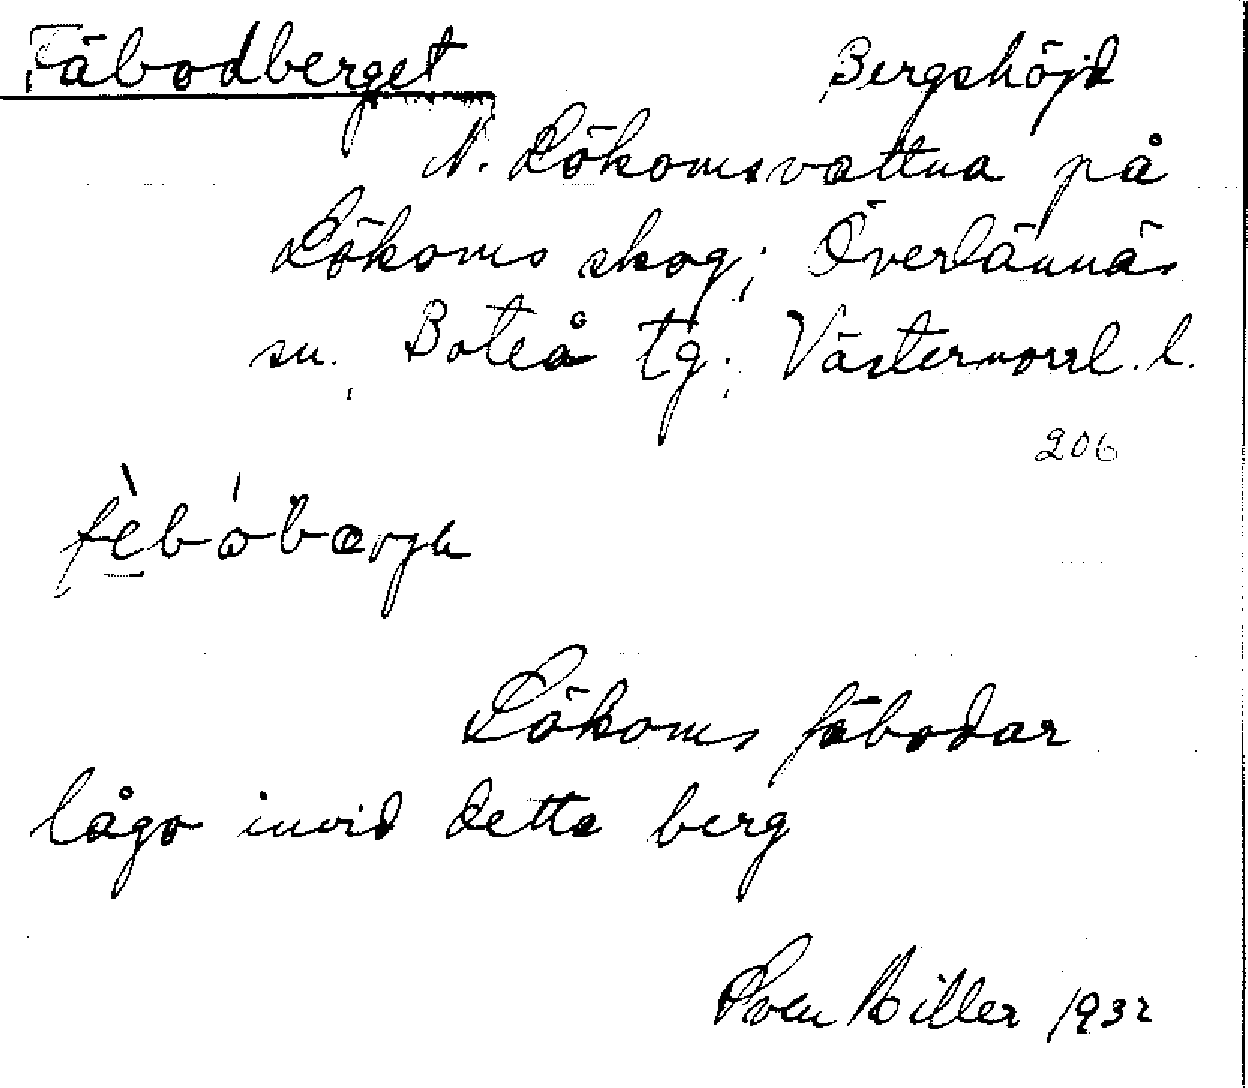 Fäbodberget Bergshöjd
N. Lökomsvattna på
Lökoms skog; Överlännäs
sn. Boteå tg; Västernorrl. l.
206
fèbóbærjə
Lökoms fäbodar
lågo invid detta berg
Sven Hiller 1932